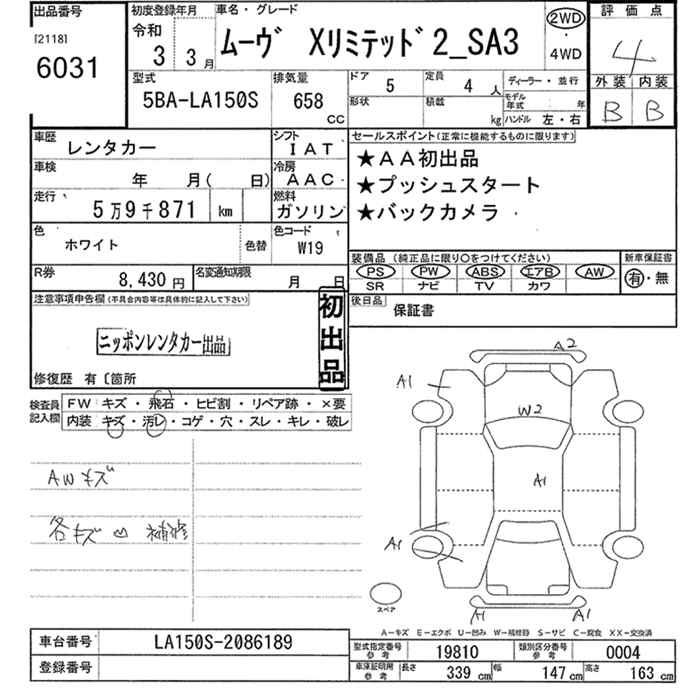 出品番号
[2118]
6031
初度登録年月
令和
3 3月
車名・グレード
ムーヴ Xリミテッド2_SA3
2WD
・
4WD
評価点
4
外装 内装
B B
型式
5BA-LA150S
排気量
658
CC
ドア
5
定員
4 人
ディーラー・並行
形状
積載
kg
モデル年式 年
ハンドル 左・右
車歴
レンタカー
シフト
IAT
車検
年 月( 日)
冷房
AAC
走行
5万9千871 km
燃料
ガソリン
色
ホワイト
色替
色コード
W19
R券
8,430 円
名変通知期限
月 日
セールスポイント(正常に機能するものに限ります)
★AA初出品
★プッシュスタート
★バックカメラ
装備品 (純正品に限り○をつけてください)
PS PW ABS エアB AW
SR ナビ TV カワ
新車保証書
有・無
後日品
保証書
注意事項申告欄(不具合内容等は具体的に記入して下さい)
ニッポンレンタカー出品
初出品
修復歴 有〔箇所
検査員記入欄
FW キズ・飛石・ヒビ割・リペア跡・×要
内装 キズ・汚レ・コゲ・穴・スレ・キレ・破レ
AWキズ
各キズ 補修
A2
A1
W2
A1
A1
A1
A1
スペア
A―キズ E―エクボ U―凹み W―補修跡 S―サビ C―腐食 XX―交換済
車台番号
LA150S-2086189
登録番号
型式指定番号
参考
19810
類別区分番号
参考
0004
車庫証明用
参考
長さ 339 cm
幅 147 cm
高さ 163 cm